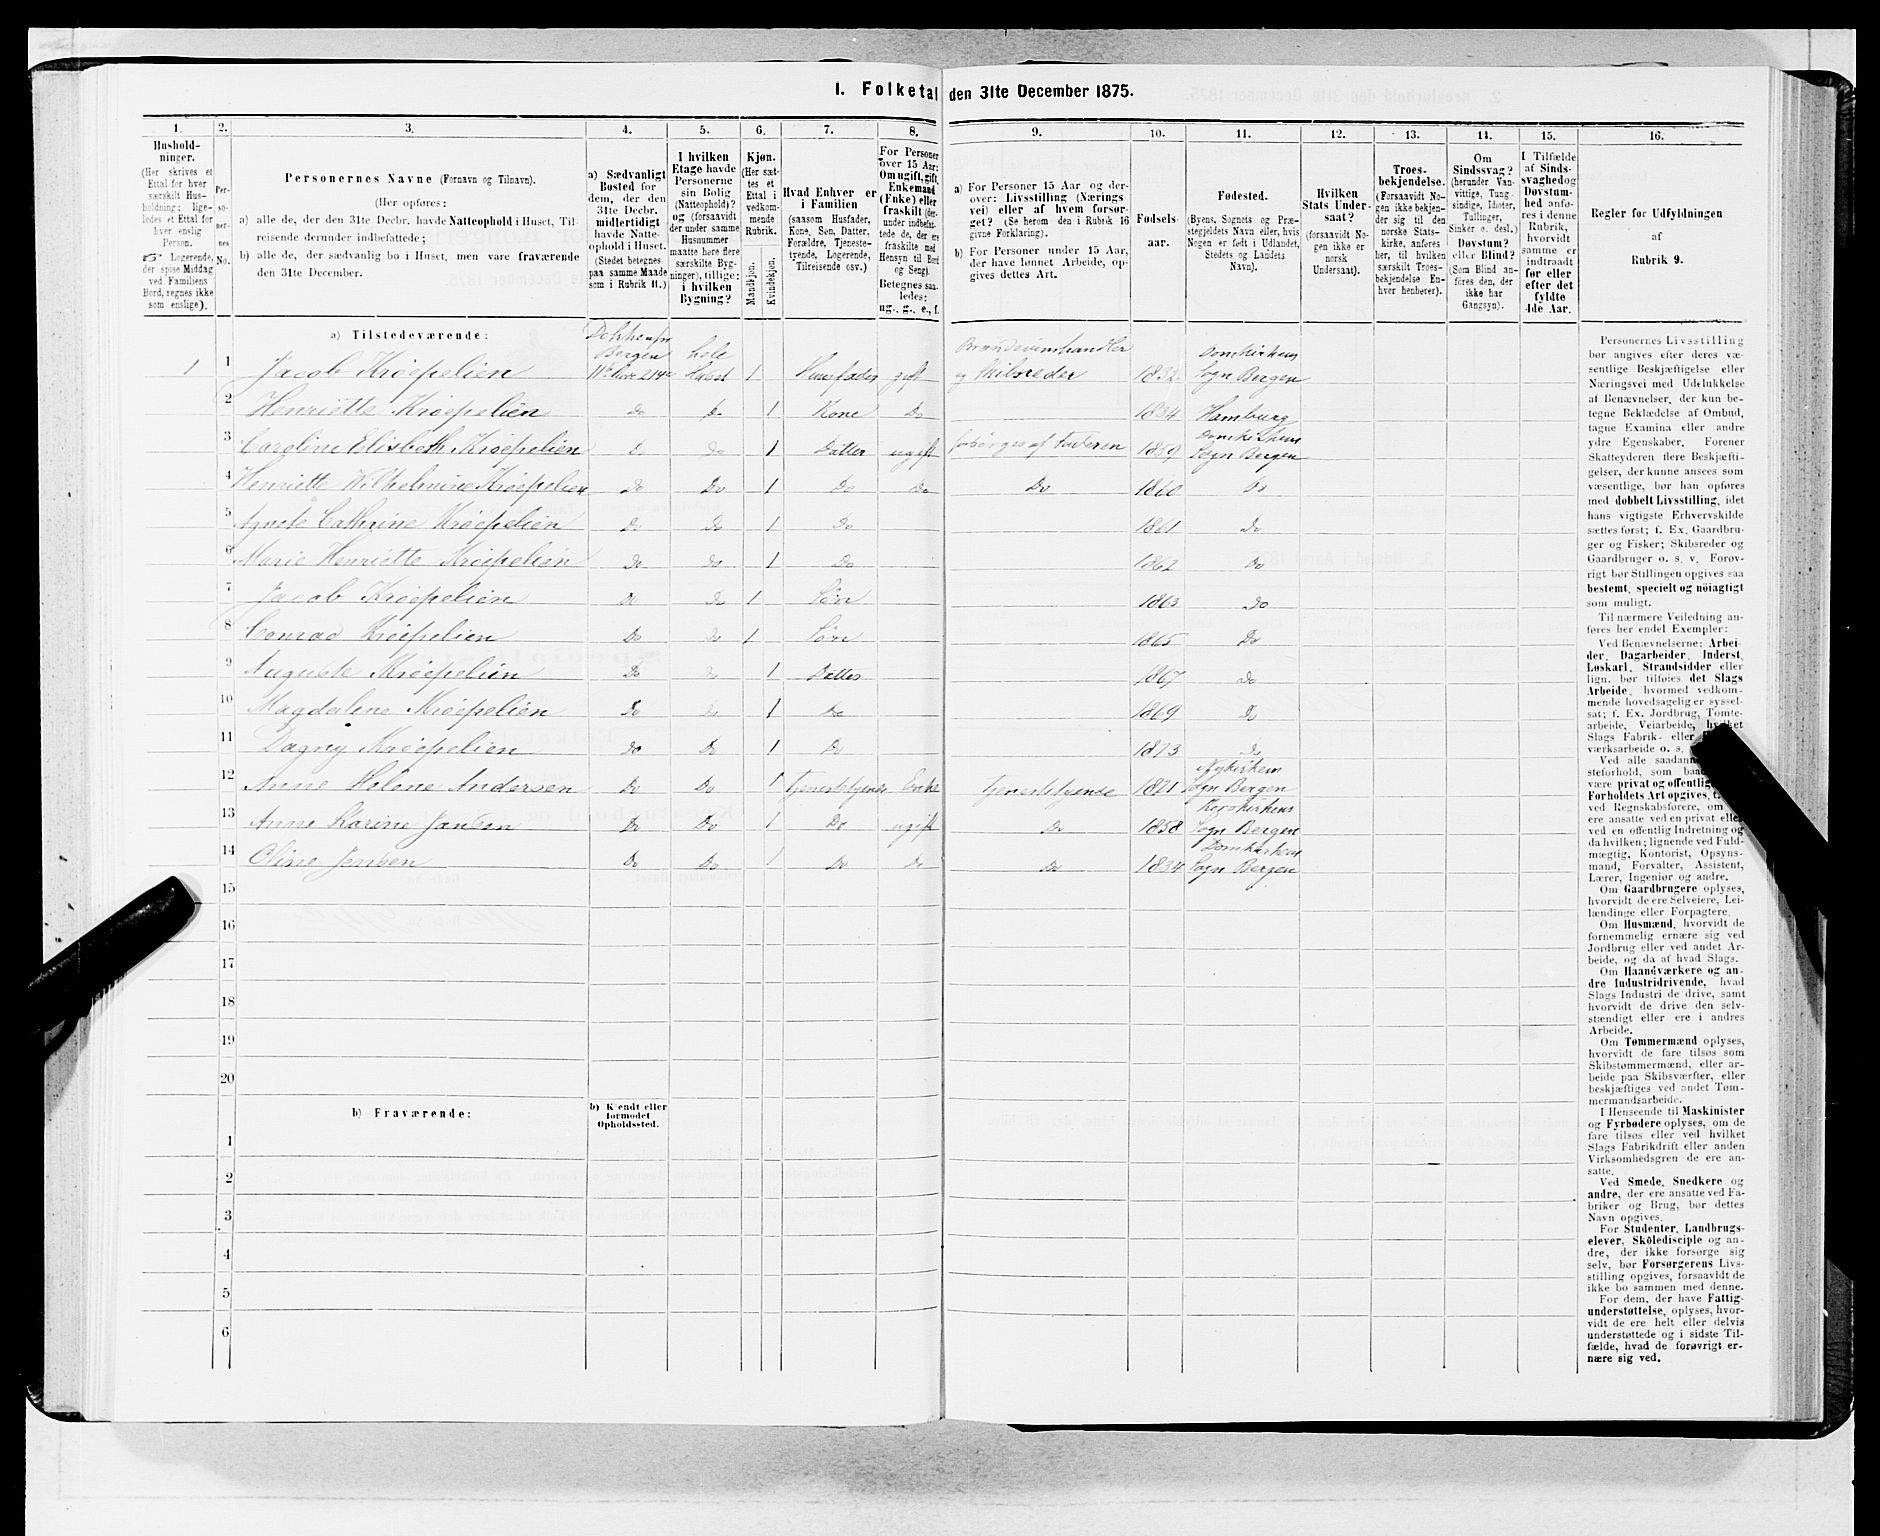 1. Folketal den 31te December 1875.
1. 2. 3. 4. 5. 6. 7. 8. 9. 10. 11. 12. 13. 14. 15. 16.
Hushold-
ninger.
(Her skrives et
Ettal for hver
særskilt Hus-
holdning; lige-
ledes et Ettal for
hver enslig
Person.
☞ Logerende,
der spise Middag
ved Familiens
Bord, regnes ikke
som enslige).
Per-
so-
ner-
nes
No.
Personernes Navne (Fornavn og Tilnavn).
(Her opføres:
a) alle de, der den 31te Decbr. havde Natteophold i Huset, Til-
reisende derunder indbefattede;
b) alle de, der sædvanlig bo i Huset, men vare fraværende
den 31te December.
a) Sædvanligt
Bosted for
dem, der den
31te Decbr.
midlertidigt
havde Natte-
ophold i Huset.
(Stedet betegnes
paa samme Maade
som i Rubrik 11.)
I hvilken
Etage havde
Personerne
sin Bolig
(Natteophold)?
og (forsaavidt
der under samme
Husnummer
maatte høre flere
særskilte Byg-
ninger), tillige:
i hvilken
Bygning?
Kjøn.
(Her sæt-
tes et
Ettal i
vedkom-
mende
Rubrik.
Mandkjøn.
Kvindekjøn.
Hvad Enhver er
i Familien
(saasom Husfader,
Kone, Søn, Datter,
Forældre, Tjeneste-
tyende, Logerende,
Tilreisende osv.)
For Personer
over 15 Aar:
Om ugift, gift,
Enkemand
(Enke) eller
fraskilt (der-
under indbefat-
tede de, der ere
fraskilte med
Hensyn til Bord
og Seng).
Betegnes saa-
ledes:
ug., g., e., f.
a) For Personer 15 Aar og der-
over: Livsstilling (Nærings
vei) eller af hvem forsør-
get? (Se herom den i Rubrik 16
givne Forklaring).
b) For Personer under 15 Aar,
der have lønnet Arbeide, op-
gives dettes Art.
Fødsels-
aar.
Fødested.
(Byens, Sognets og Præ-
stegjeldets Navn eller, hvis
Nogen er født i Udlandet,
Stedets og Landets
Navn).
Hvilken
Stats Under-
saat?
(forsaavidt No-
gen ikke er
norsk
Undersaat).
Troes-
bekjendelse.
(Forsaavidt No-
gen ikke bekjen-
der sig til den
norske Stats-
kirke, anføres
her, til hvilken
særskilt Troes-
bekjendelse En-
hver henhører).
Om
Sindssvag?
(herunder Van-
vittige, Tung-
sindige, Idioter,
Tullinger,
Sinker o. desl.)
Døvstum?
eller Blind?
(Som Blind an-
føres den, der
ikke har
Gangsyn).
I Tilfælde
af Sinds-
svaghed og
Døvstum-
hed anfø-
res i denne
Rubrik,
hvorvidt
samme er
indtraadt
før eller
efter det
fyldte
4de Aar.
Regler før Udfyldningen
af
Rubrik 9.
a) Tilstedeværende:
1 1 Jacob Krøepelien Bergen hele Huset 1 Husfader gift Brændevinshandler og Skibsreder 1832 Domkirkens Sogn Bergen
2 Henriette Krøepelien Do Do 1 Kone Do 1834 Hamburg
3 Caroline Elisbeth Krøepelien Do Do 1 Datter ugift forsörges af Faderen 1859 Domkirkens Sogn Bergen
4 Henriette Wilhelmine Krøepelien Do Do 1 Do Do Do 1860 Do
5 Agnete Cathrine Krøepelien Do Do 1 Do 1861 Do
6 Marie Henriette Krøepelien Do Do 1 Do 1862 Do
7 Jacob Krøepelien Do Do 1 Sön 1863 Do
8 Conrad Krøepelien Do Do 1 Sön 1865 Do
9 Auguste Krøepelien Do Do 1 Datter 1867 Do
10 Magdalene Krøepelien Do Do 1 Do 1869 Do
11 Dagny Krøepelien Do Do 1 Do 1873 Do
12 Anne Helene Andersen Do Do 1 Tjenestetyende Enke Tjenestetyende 1821 Nykirkens Sogn Bergen
13 Anne Karine Jansen Do Do 1 Do ugift Do 1858 Korskirkens Sogn Bergen
14 Oline Jensen Do Do 1 Do Do Do 1834 Domkirkens Sogn Bergen
15
16
17
18
19
20
b) Fraværende:
b) Kjendt eller
formodet
Opholdssted.
1
2
3
4
5
6
Personernes Livsstilling
bør angives efter deres væ-
sentlige Beskjæftigelse eller
Næringsvei med Udelukkelse
af Benævnelser, der kun be-
tegne Beklædelse af Ombud,
tagne Examina eller andre
ydre Egenskaber. Forener
Skatteyderen flere Beskjæfti-
gelser, der kunne ansees som
væsentlige, bør han opføres
med dobbelt Livsstilling, idet
hans vigtigste Erhvervskilde
sættes først; f. Ex. Gaardbru-
ger og Fisker; Skibsreder og
Gaardbruger o. s. v. Forøv-
rigt bør Stillingen opgives saa
bestemt, specielt og nöiagtigt
som muligt.
Til nærmere Veiledning an-
føres her endel Exempler:
Ved Benævnelserne: Arbei-
der, Dagarbeider, Inderst,
Løskarl, Strandsidder eller
lign. bør tilføies det Slags
Arbeide, hvormed vedkom-
mende hovedsagelig er syssel-
sat; f. Ex. Jordbrug, Tomte-
arbeide, Veiarbeide, hvilket
Slags Fabrik- eller
værksarbeide o. s.
Ved alle saadan
steforhold, som
være privat og offentlig
Forholdets Art opgives,
ved Regnskabsførere, om
ere ansatte ved en privat eller
ved en offentlig Indretning og
da hvilken; lignende ved Fuld-
mægtig, Kontorist, Opsyns-
mand, Forvalter, Assistent,
Lærer, Ingeniør og andre.
Om Gaardbrugere oplyses,
hvorvidt de ere Selveiere, Lei-
lændinge eller Forpagtere.
Om Husmænd, hvorvidt de
fornemmelig ernære sig ved
Jordbrug eller ved andet Ar-
beide, og da af hvad Slags.
Om Haandværkere og an-
dre Industridrivende, hvad
Slags Industri de drive, samt
hvorvidt de drive den selv-
stændigt eller ere i andres
Arbeide.
Om Tømmermænd oplyses,
hvorvidt de fare tilsøs som
Skibstømmermænd, eller ar-
beide paa Skibsværfter, eller
beskjæftiges ved andet Tøm-
mermandsarbeide.
I Henseende til Maskinister
og Fyrbødere oplyses, om de
fare tilsøs eller ved hvilket
Slags Fabrikdrift eller anden
Virksomhedsgren de ere an-
satte.
Ved Smede, Snedkere og
andre, der ere ansatte ved Fa-
briker og Brug, bør dettes
Navn opgives.
For Studenter, Landbrugs-
elever, Skoledisciple og an-
dre, der ikke forsørge sig
selv, bør Forsørgerens Livs-
stilling opgives, forsaavidt de
ikke bo sammen med denne.
For dem, der have Fattig-
understøttelse, oplyses, hvor-
vidt de ere helt eller delvis
understøttede og i sidste Til-
fælde, hvad de forøvrigt er-
nære sig ved.